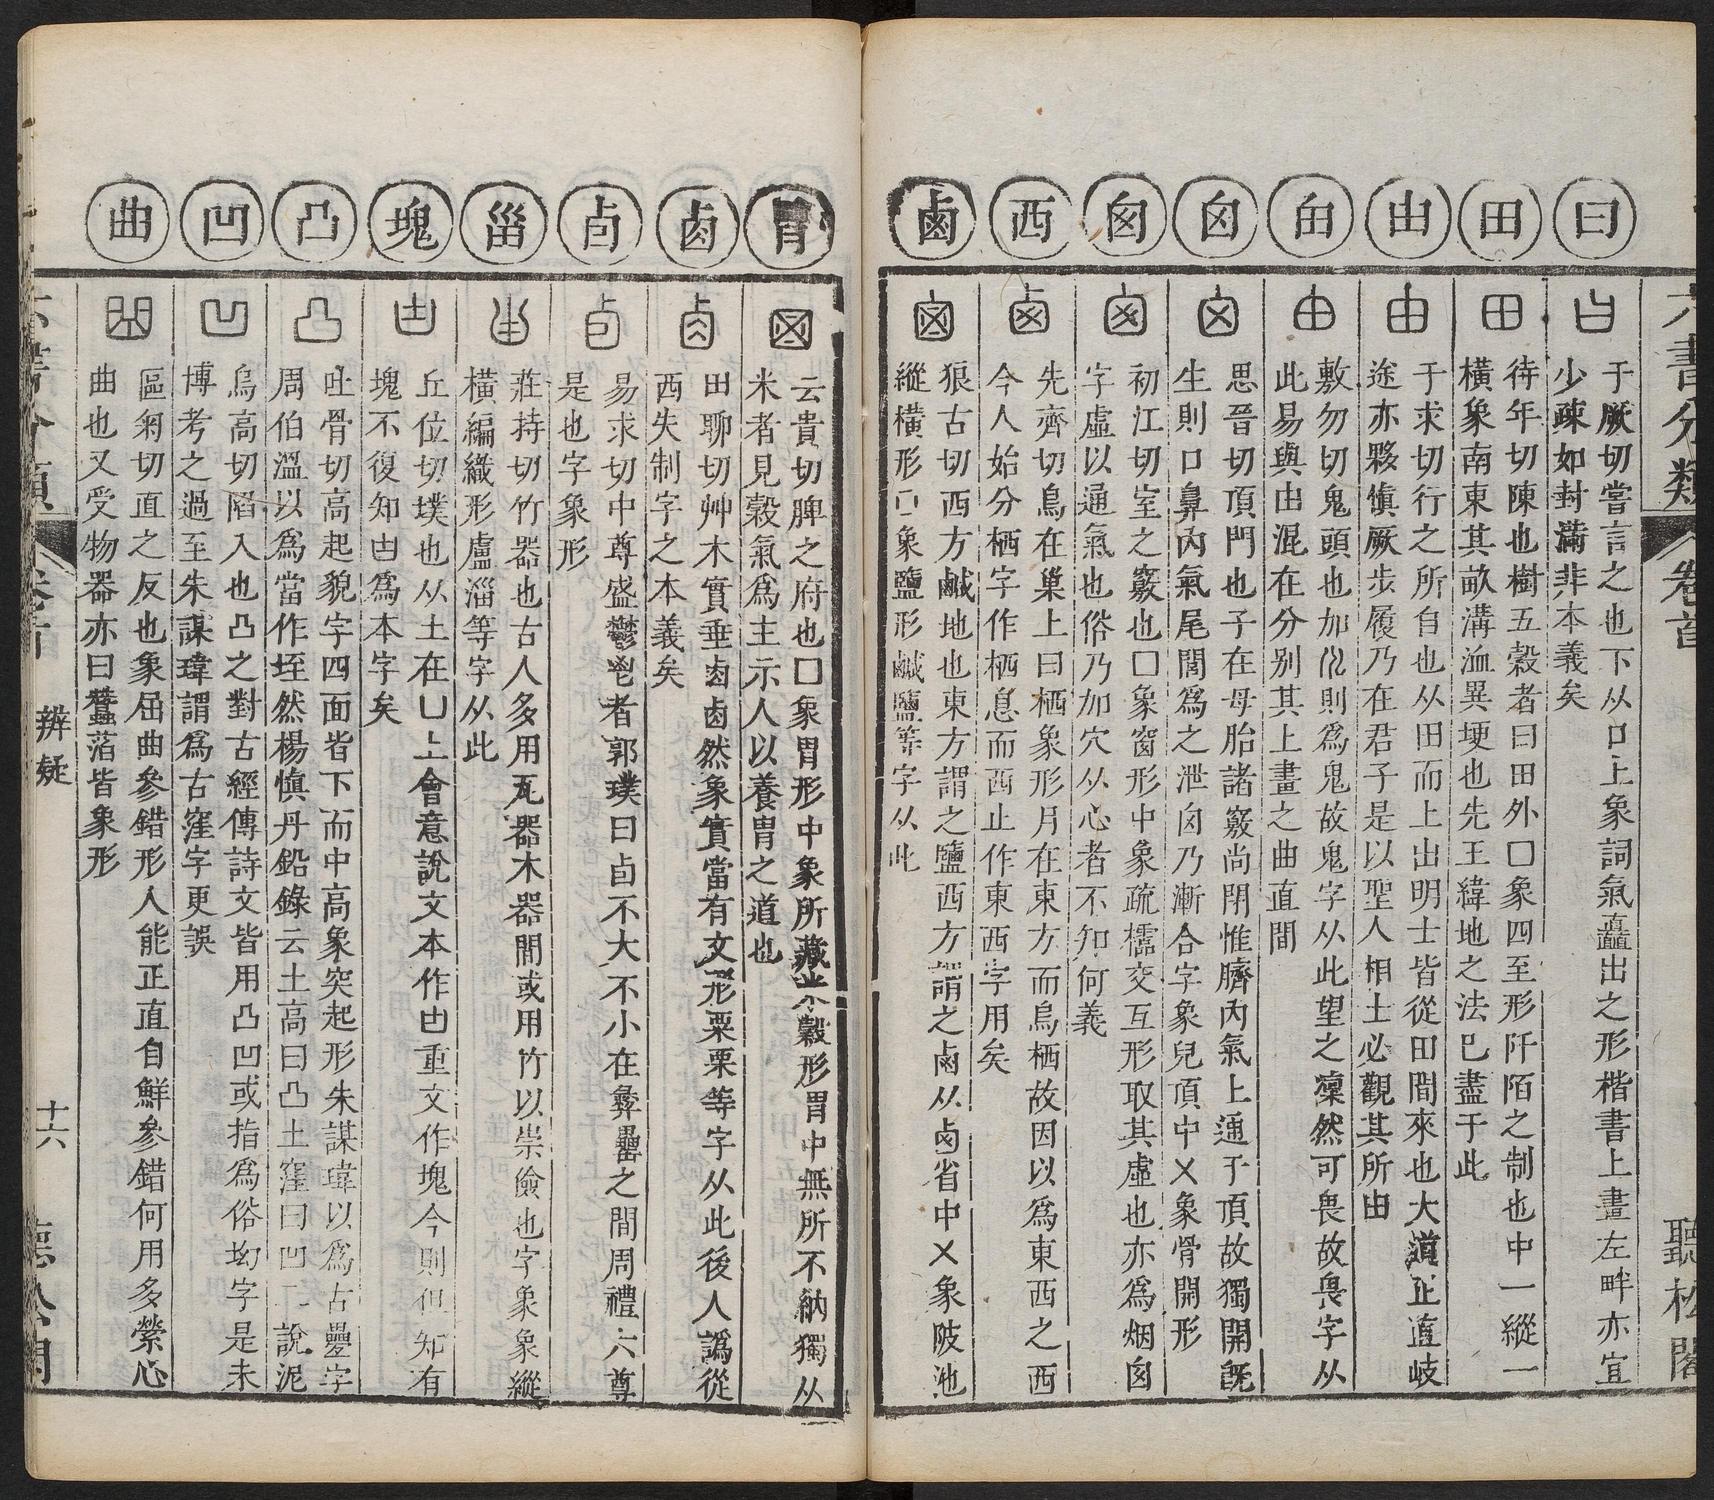 六書分類 卷首 聽松閣
曰
于厥切嘗言之也下从口上象詞氣矗出之形楷書上畫左畔亦宜
少疎如封滿非本義矣
田
待年切陳也樹五穀者曰田外囗象四至形阡陌之制也中一縱一
橫象南東其畝溝洫異埂也先王緯地之法巳盡于此
由
于求切行之所自也从田而上出明士皆從田間來也大道正直岐
途亦夥愼厥步履乃在君子是以聖人相士必觀其所由
甶
敷勿切鬼頭也加儿則爲鬼故鬼字从此望之凜然可畏故畏字从
此易與由混在分别其上畫之曲直間
囟
思晉切頂門也子在母胎諸竅尚閉惟臍內氣上通于頂故獨開旣
生則口鼻內氣尾閭爲之泄囟乃漸合字象兒頂中㐅象骨開形
囱
初江切室之竅也囗象窗形中象疏檽交互形取其虛也亦爲烟囱
字虛以通氣也俗乃加穴从心者不知何義
西
先齊切鳥在巢上曰栖象形月在東方而鳥栖故因以爲東西之西
今人始分栖字作栖息而西止作東西字用矣
鹵
狼古切西方鹹地也東方謂之鹽西方謂之鹵从卤省中㐅象陂池
縱橫形囗象鹽形鹹鹽等字从此
胃
云貴切脾之府也囗象胃形中象所藏米穀形胃中無所不納獨从
米者見穀氣爲主示人以養胃之道也
卤
田聊切艸木實垂卤卤然象實當有文形粟栗等字从此後人譌從
西失制字之本義矣
卣
易求切中尊盛鬱鬯者郭璞曰卣不大不小在彝罍之間周禮六尊
是也字象形
甾
莊持切竹器也古人多用瓦器木器間或用竹以崇儉也字象象縱
橫編織形盧淄等字从此
塊
丘位切墣也从土在凵上會意說文本作凷重文作塊今則但知有
塊不復知凷爲本字矣
凸
吐骨切高起貌字四面皆下而中高象突起形朱謀瑋以爲古壘字
周伯溫以爲當作垤然楊慎丹鉛錄云土高曰凸土窪曰凹二說泥
凹
烏高切陷入也凸之對古經傳詩文皆用凸凹或指爲俗㘭字是未
博考之過至朱謀瑋謂爲古窪字更誤
曲
區匊切直之反也象屈曲參錯形人能正直自鮮參錯何用多縈心
曲也又受物器亦曰蠶箔皆象形
六書分類 卷首 辨疑 十六 聽松閣